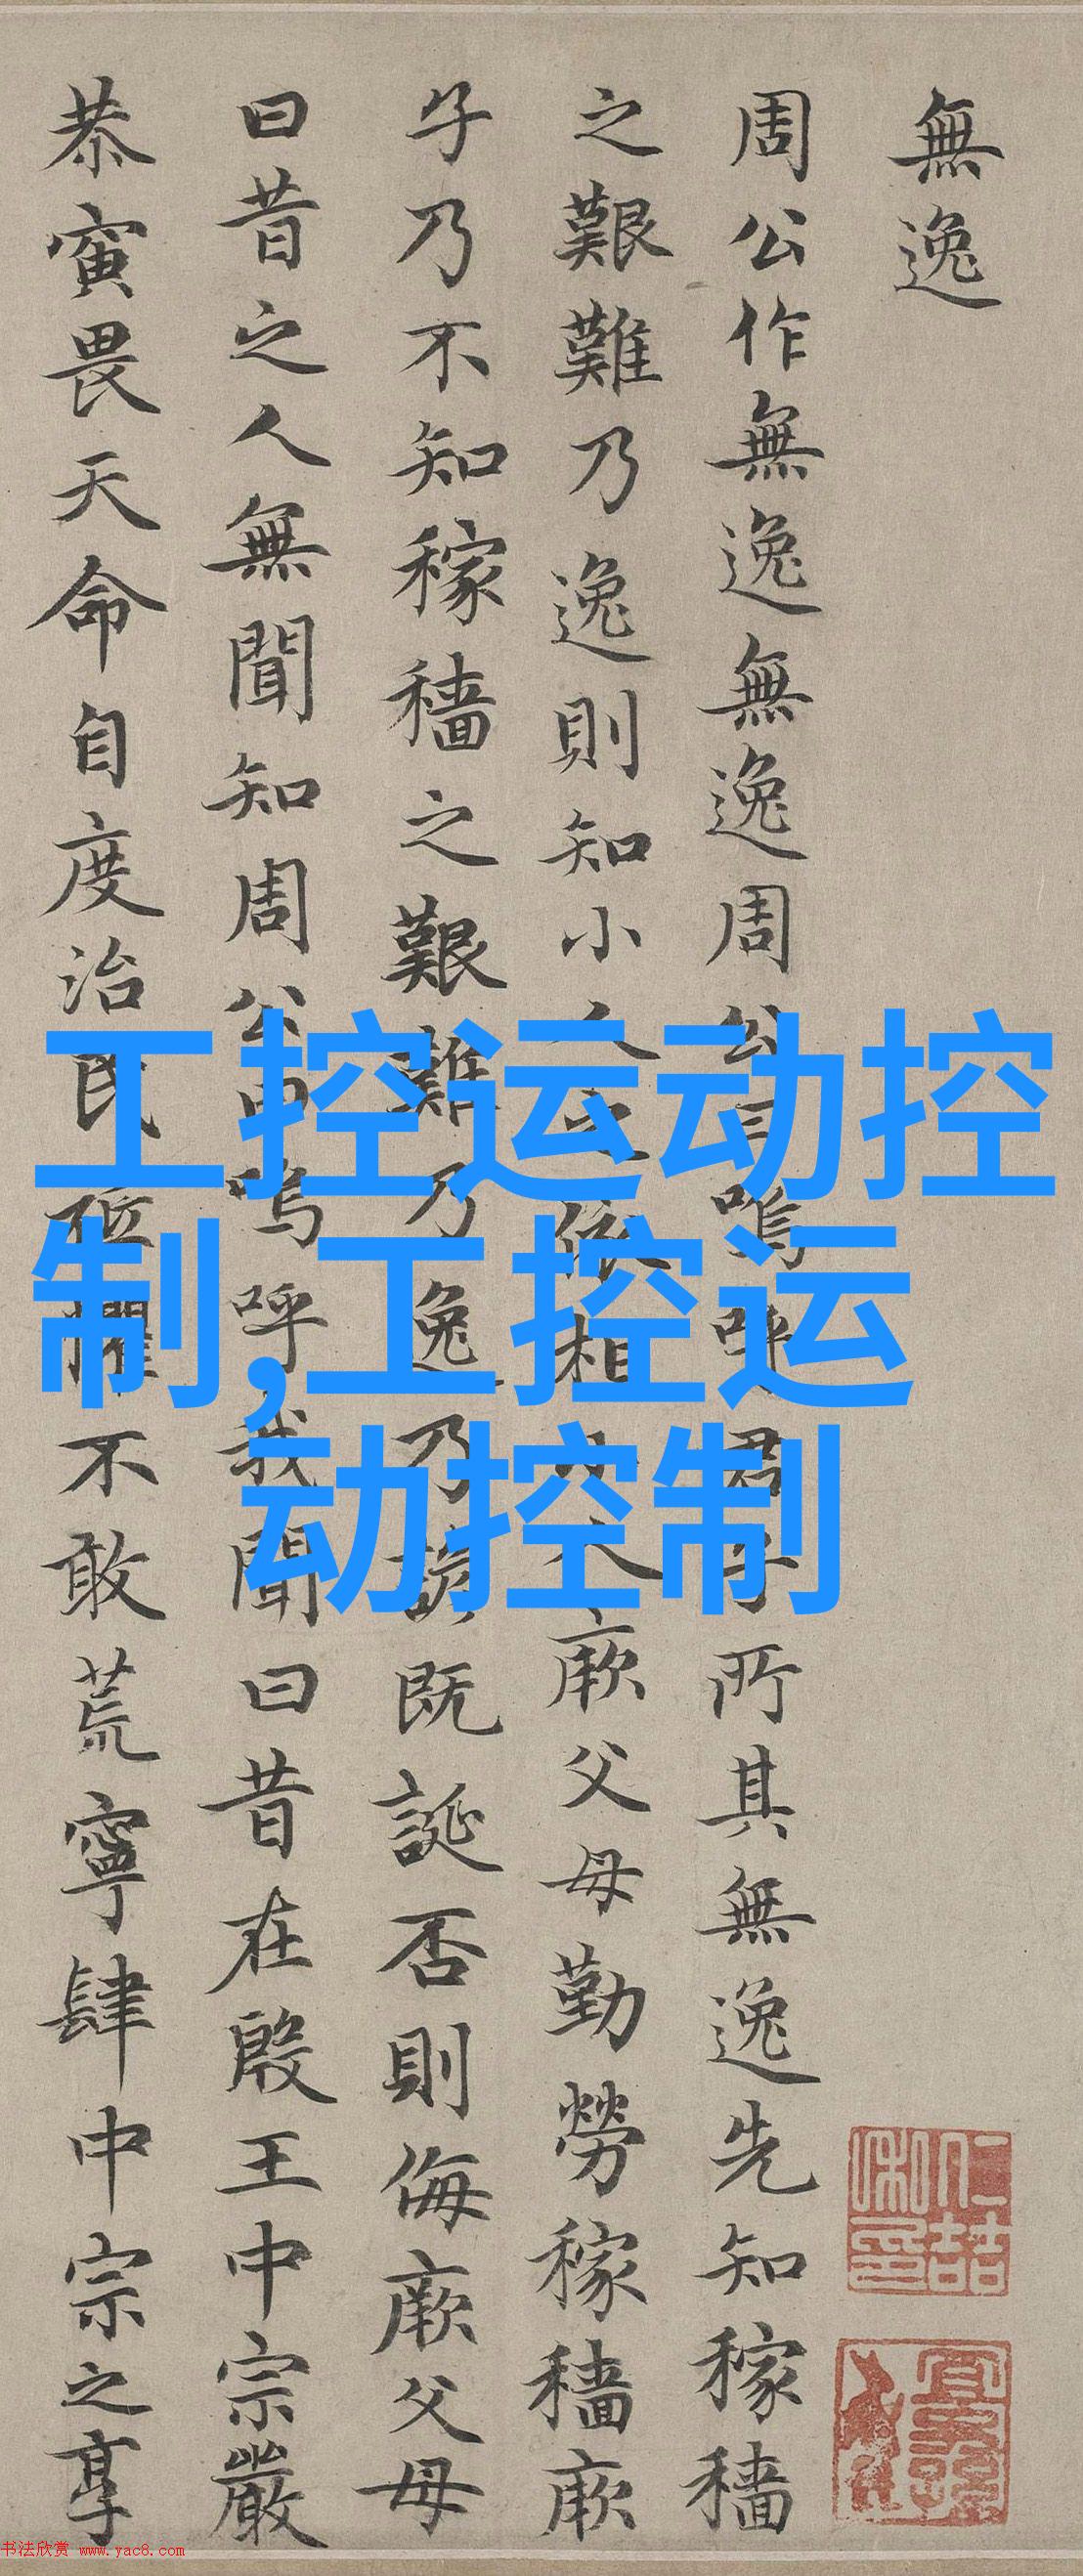 無逸
周公作無逸無逸周公曰嗚呼君子所其無逸先知稼穡
之艱難乃逸則知小人之依相小人厥父母勤勞稼穡厥
子乃不知稼穡之艱難乃逸乃諺既誕否則侮厥父母
曰昔之人無聞知周公曰嗚呼我聞曰昔在殷王中宗嚴
恭寅畏天命自度治民祗懼不敢荒寧肆中宗之享
工控运动控
制,工控运
动控制
书法欣赏 www.yac8.com